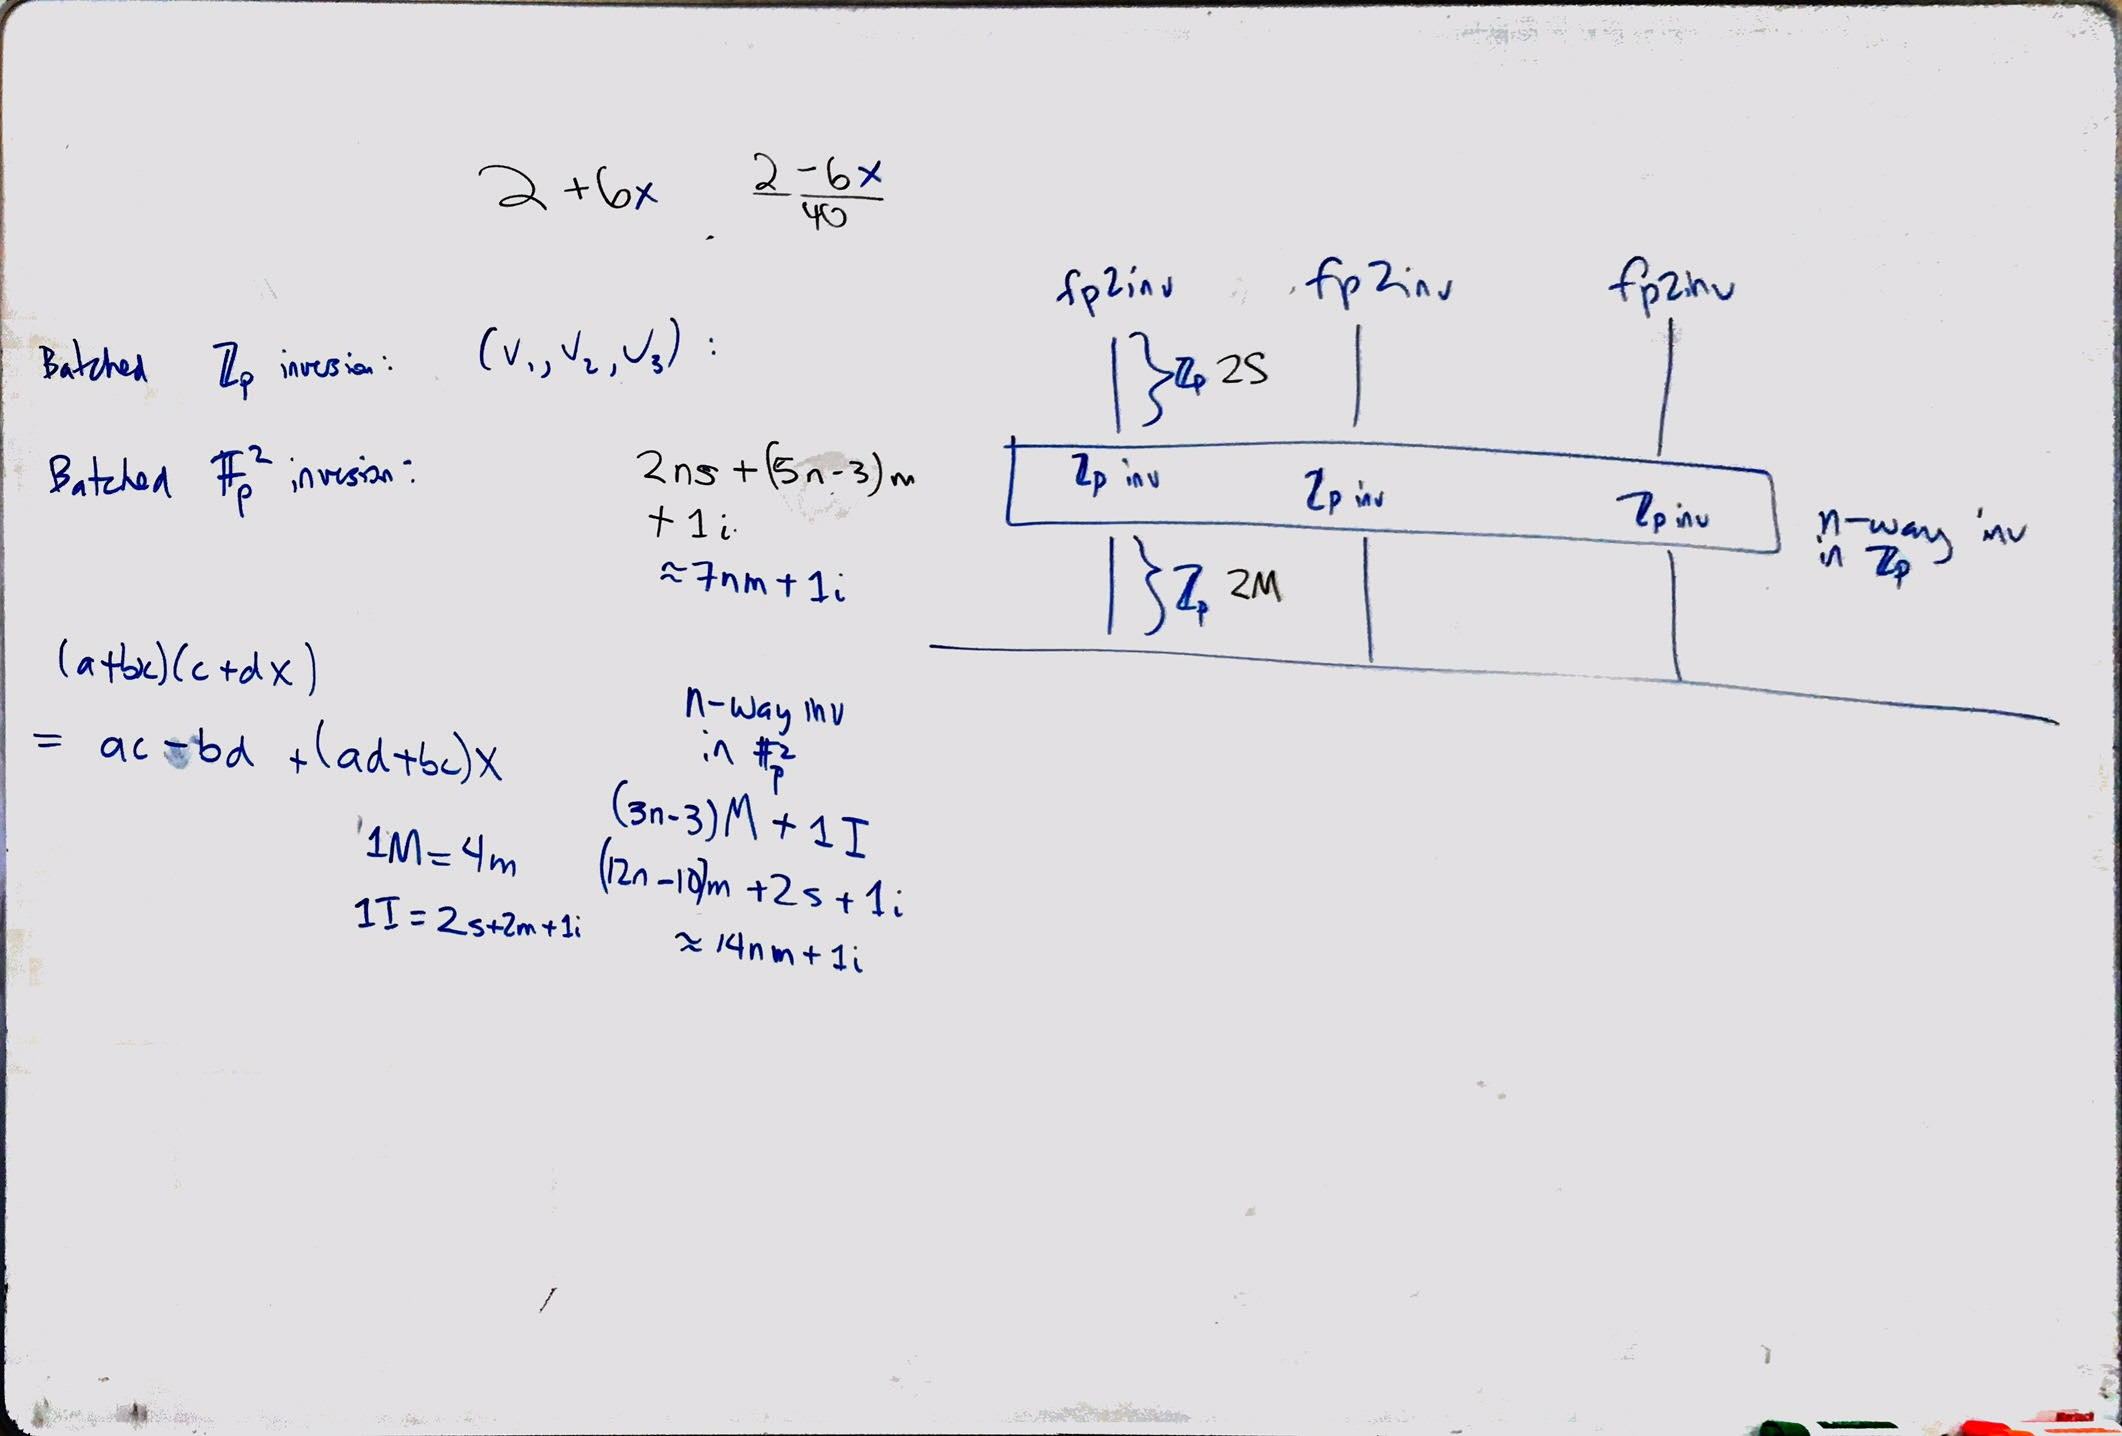 2 + 6x   2 - 6x
40
Batched ℤp inversion: (v₁, v₂, v₃) :
Batched 𝔽p² inversion: 2ns + (5n-3)m
+ 1i
≈ 7nm + 1i
(a+bx)(c+dx)
= ac - bd + (ad+bc)x
1M = 4m
1I = 2s+2m+1i
n-way inv
in 𝔽p²
(3n-3)M + 1I
(12n-10)m + 2s + 1i
≈ 14nm + 1i
fp2inv fp2inv fp2inv
} ℤp 2S
ℤp inv ℤp inv ℤp inv
n-way inv
in ℤp
} ℤp 2M